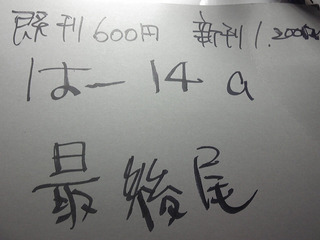 既刊600円 新刊1.200円
はー14 a
最後尾